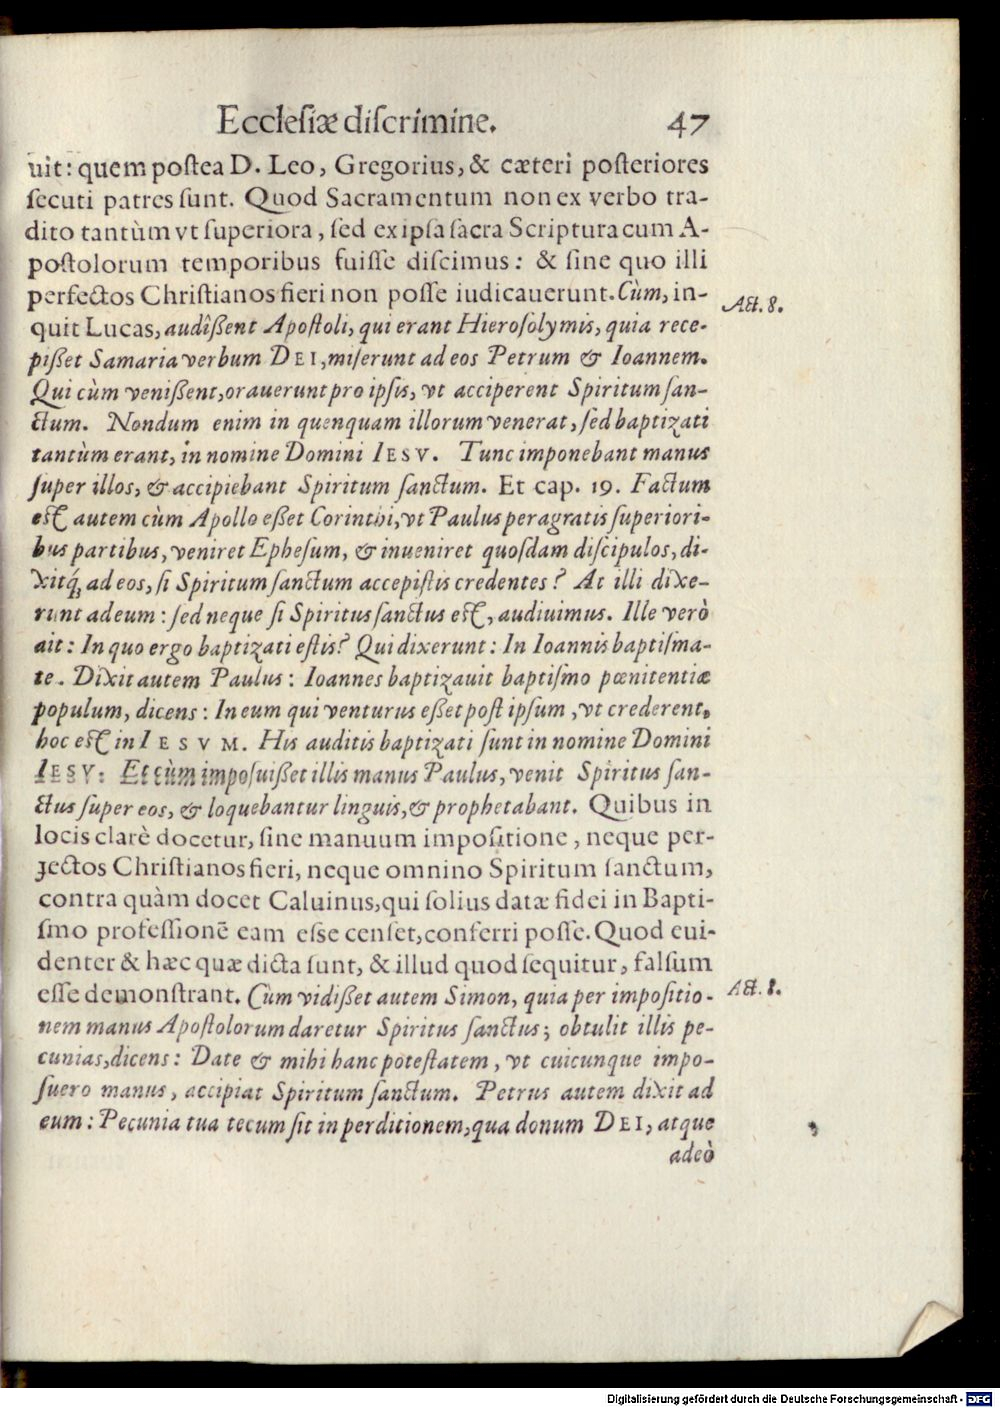 Ecclesiæ discrimine. 47
uit: quem postea D. Leo, Gregorius, & cæteri posteriores
secuti patres sunt. Quod Sacramentum non ex verbo tra-
dito tantùm vt superiora, sed ex ipsa sacra Scriptura cum A-
postolorum temporibus fuisse discimus: & sine quo illi
perfectos Christianos fieri non posse iudicauerunt. Cùm, in-
Act. 8.
quit Lucas, audîssent Apostoli, qui erant Hierosolymis, quia rece-
pisset Samaria verbum DEI, miserunt ad eos Petrum & Ioannem.
Qui cùm venissent, orauerunt pro ipsis, vt acciperent Spiritum san-
ctum. Nondum enim in quenquam illorum venerat, sed baptizati
tantùm erant, in nomine Domini IESV. Tunc imponebant manus
super illos, & accipiebant Spiritum sanctum. Et cap. 19. Factum
est autem cùm Apollo esset Corinthi, vt Paulus peragratis superiori-
bus partibus, veniret Ephesum, & inueniret quosdam discipulos, di-
xitq́, ad eos, si Spiritum sanctum accepistis credentes? At illi dixe-
runt ad eum: sed neque si Spiritus sanctus est, audiuimus. Ille verò
ait: In quo ergo baptizati estis? Qui dixerunt: In Ioannis baptisma-
te. Dixit autem Paulus: Ioannes baptizauit baptismo pœnitentiæ
populum, dicens: In eum qui venturus esset post ipsum, vt crederent,
hoc est in IESVM. His auditis baptizati sunt in nomine Domini
IESV: Et cùm imposuisset illis manus Paulus, venit Spiritus san-
ctus super eos, & loquebantur linguis, & prophetabant. Quibus in
locis clarè docetur, sine manuum impositione, neque per-
fectos Christianos fieri, neque omnino Spiritum sanctum,
contra quàm docet Caluinus, qui solius datæ fidei in Bapti-
smo professionē eam esse censet, conferri posse. Quod eui-
denter & hæc quæ dicta sunt, & illud quod sequitur, falsum
esse demonstrant. Cùm vidisset autem Simon, quia per impositio-
Act. 8.
nem manus Apostolorum daretur Spiritus sanctus; obtulit illis pe-
cunias, dicens: Date & mihi hanc potestatem, vt cuicunque impo-
suero manus, accipiat Spiritum sanctum. Petrus autem dixit ad
eum: Pecunia tua tecum sit in perditionem, qua donum DEI, atque
adeò
Digitalisierung gefördert durch die Deutsche Forschungsgemeinschaft - DFG